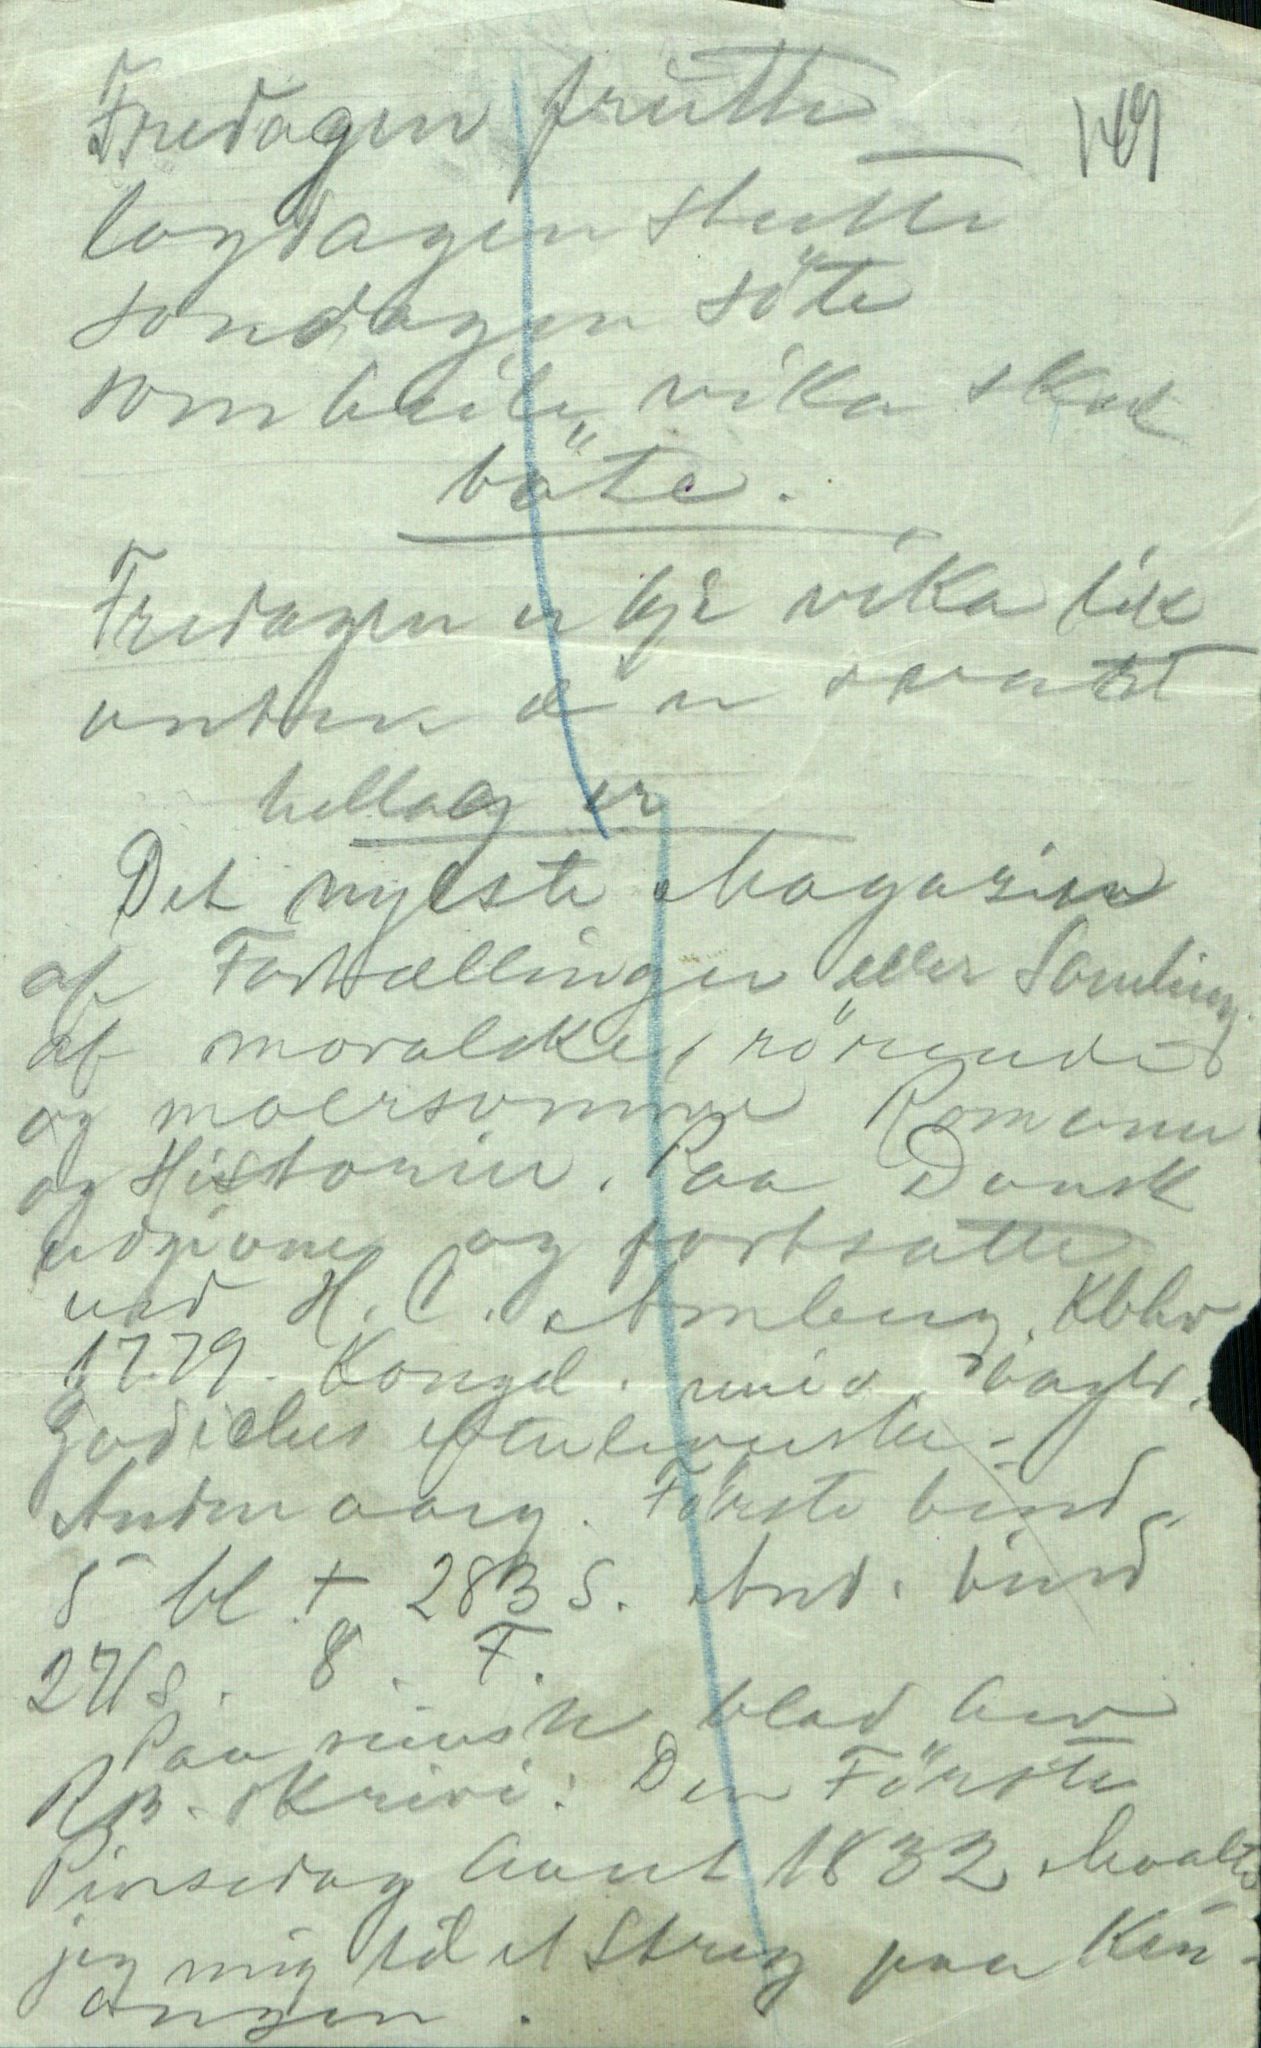 Fredagen frutte
149
loyrdagen stutte
sondagen söte
som heile vika skal
böte.
Fredagen er kje vika lik
anten den svart
hellag er
Det nyeste Magazin
af Fortællinger eller Samling
af moralske, rörende
og moersomme Romaner
og Historier. Paa Dansk
udgivne og fortsatte
ved H. C. Amberg. Kbhv
1779. Kongel. univ. bogtr.
Godiches efterleverske =
Anden aarg. Förste bind.
5 bl + 283 S. And. bind
271 s. 8. F.
Paa sinste blad hev
R. B. skrivi: Den Förste
Pinsedag havet 1832 Maalte
jeg mig til et Streg paa
angen.